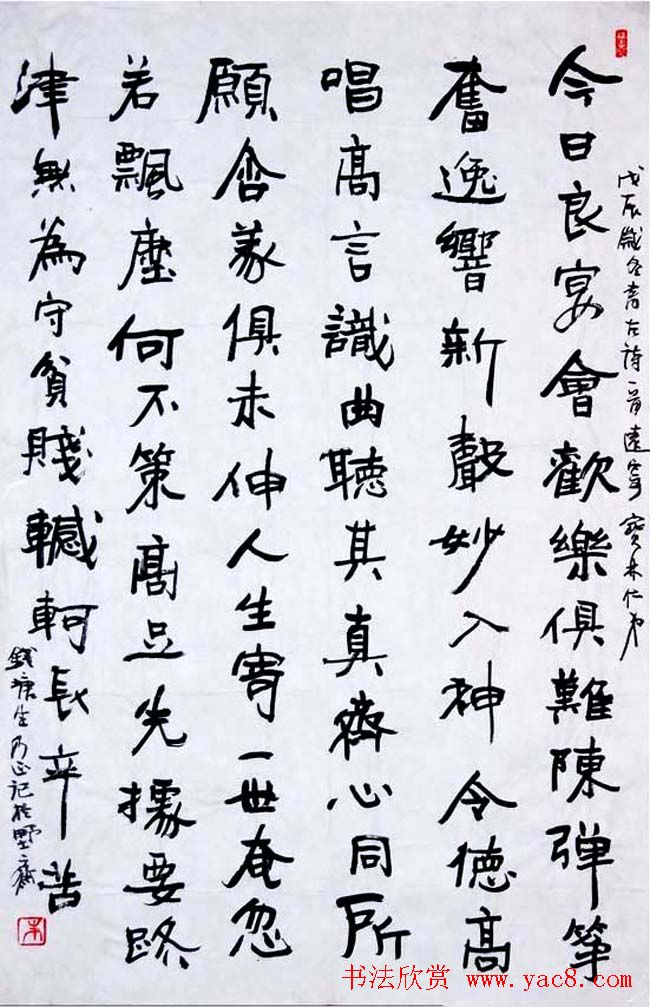 戊辰歲冬書古詩一首遠寄寶林仁弟
今日良宴會歡樂俱難陳弹筝
奮逸響新聲妙入神令德高
唱高言識曲聽其真齊心同所
願含義俱未伸人生寄一世奄忽
若飄塵何不策高足先據要路
津無為守貧賤轗軻長辛苦
錢塘生乃正記於野齋
書法欣赏 www.yac8.com